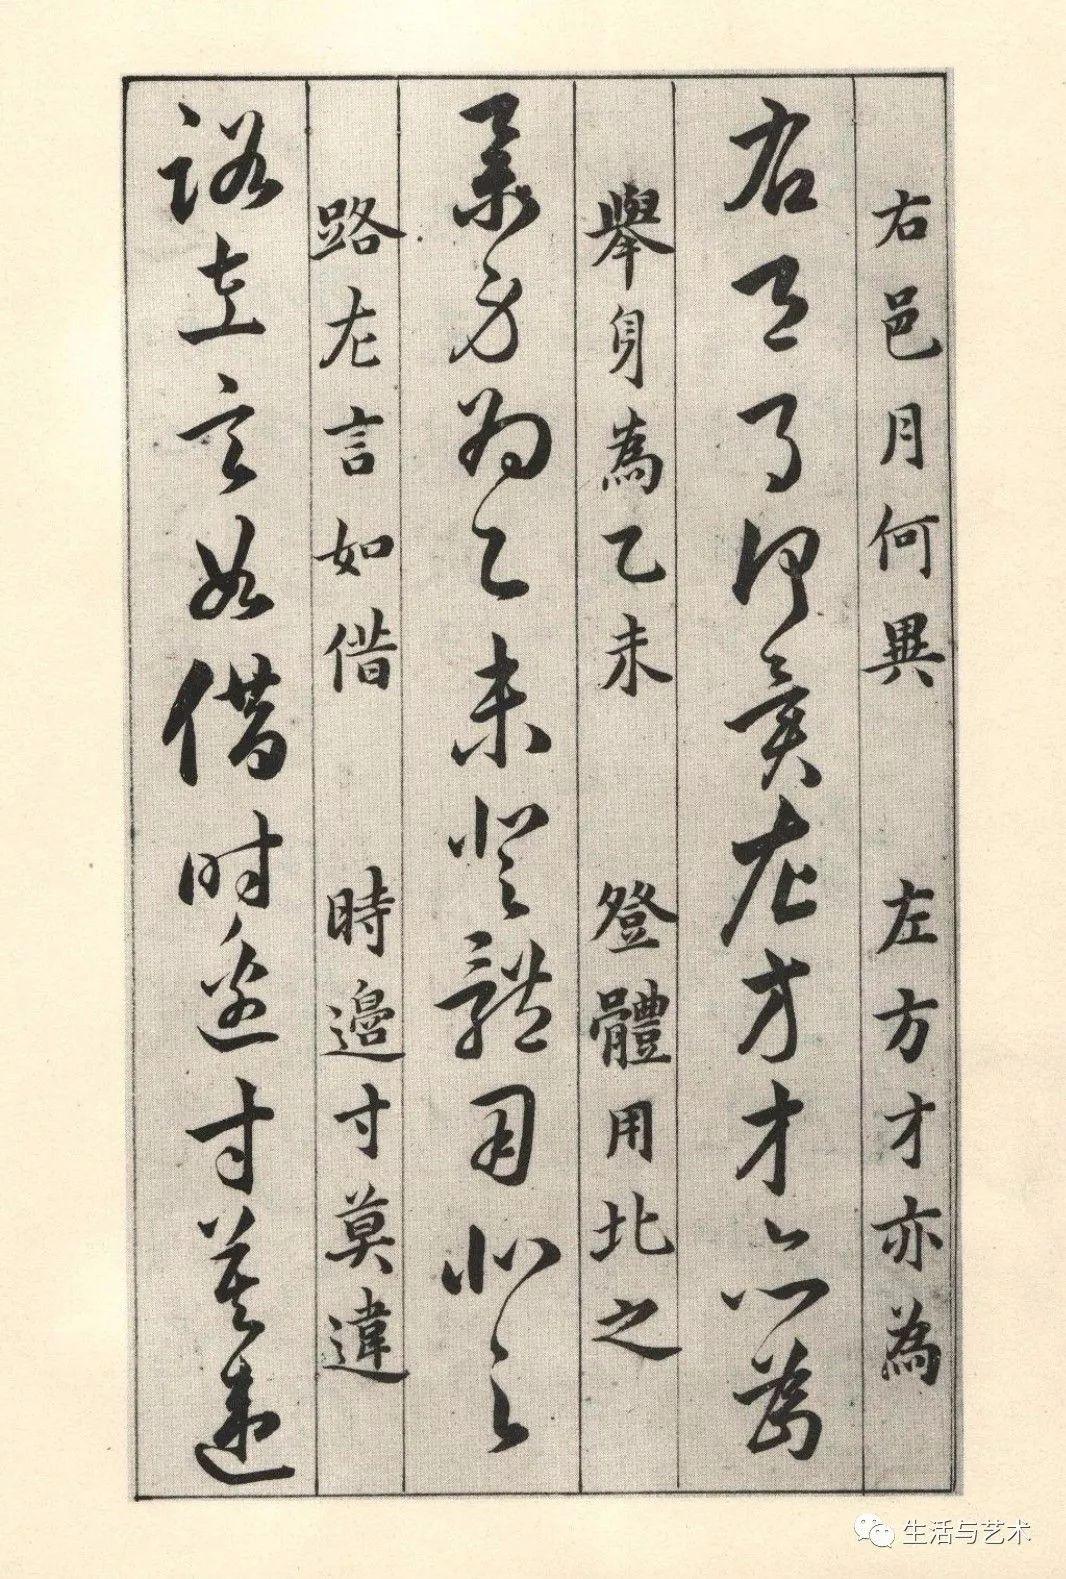 右邑月何異 左方才亦為
右邑月何異左方才亦為
舉身為乙未 登體用北之
舉身為乙未登體用北之
路左言如借 時邊寸莫違
路左言如借時邊寸莫違
生活与艺术